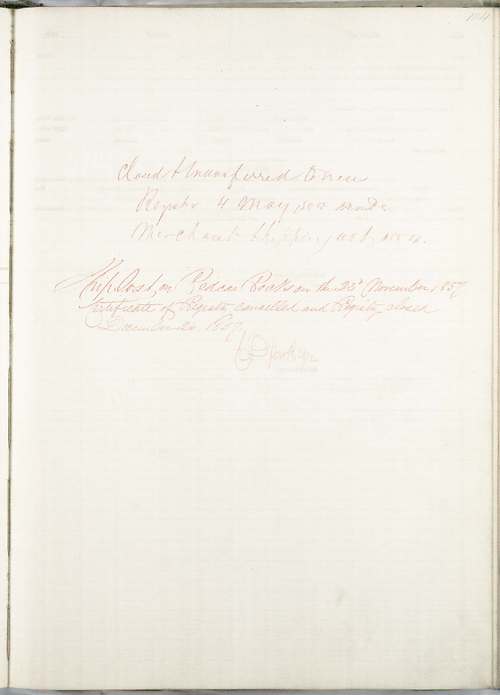 Closed & transferred to new
Register 4 May under
Merchant Shipping
Ship lost on Pedan Rocks on the 23d November 1857
Certificate of Registry cancelled and Registry closed
December 1857